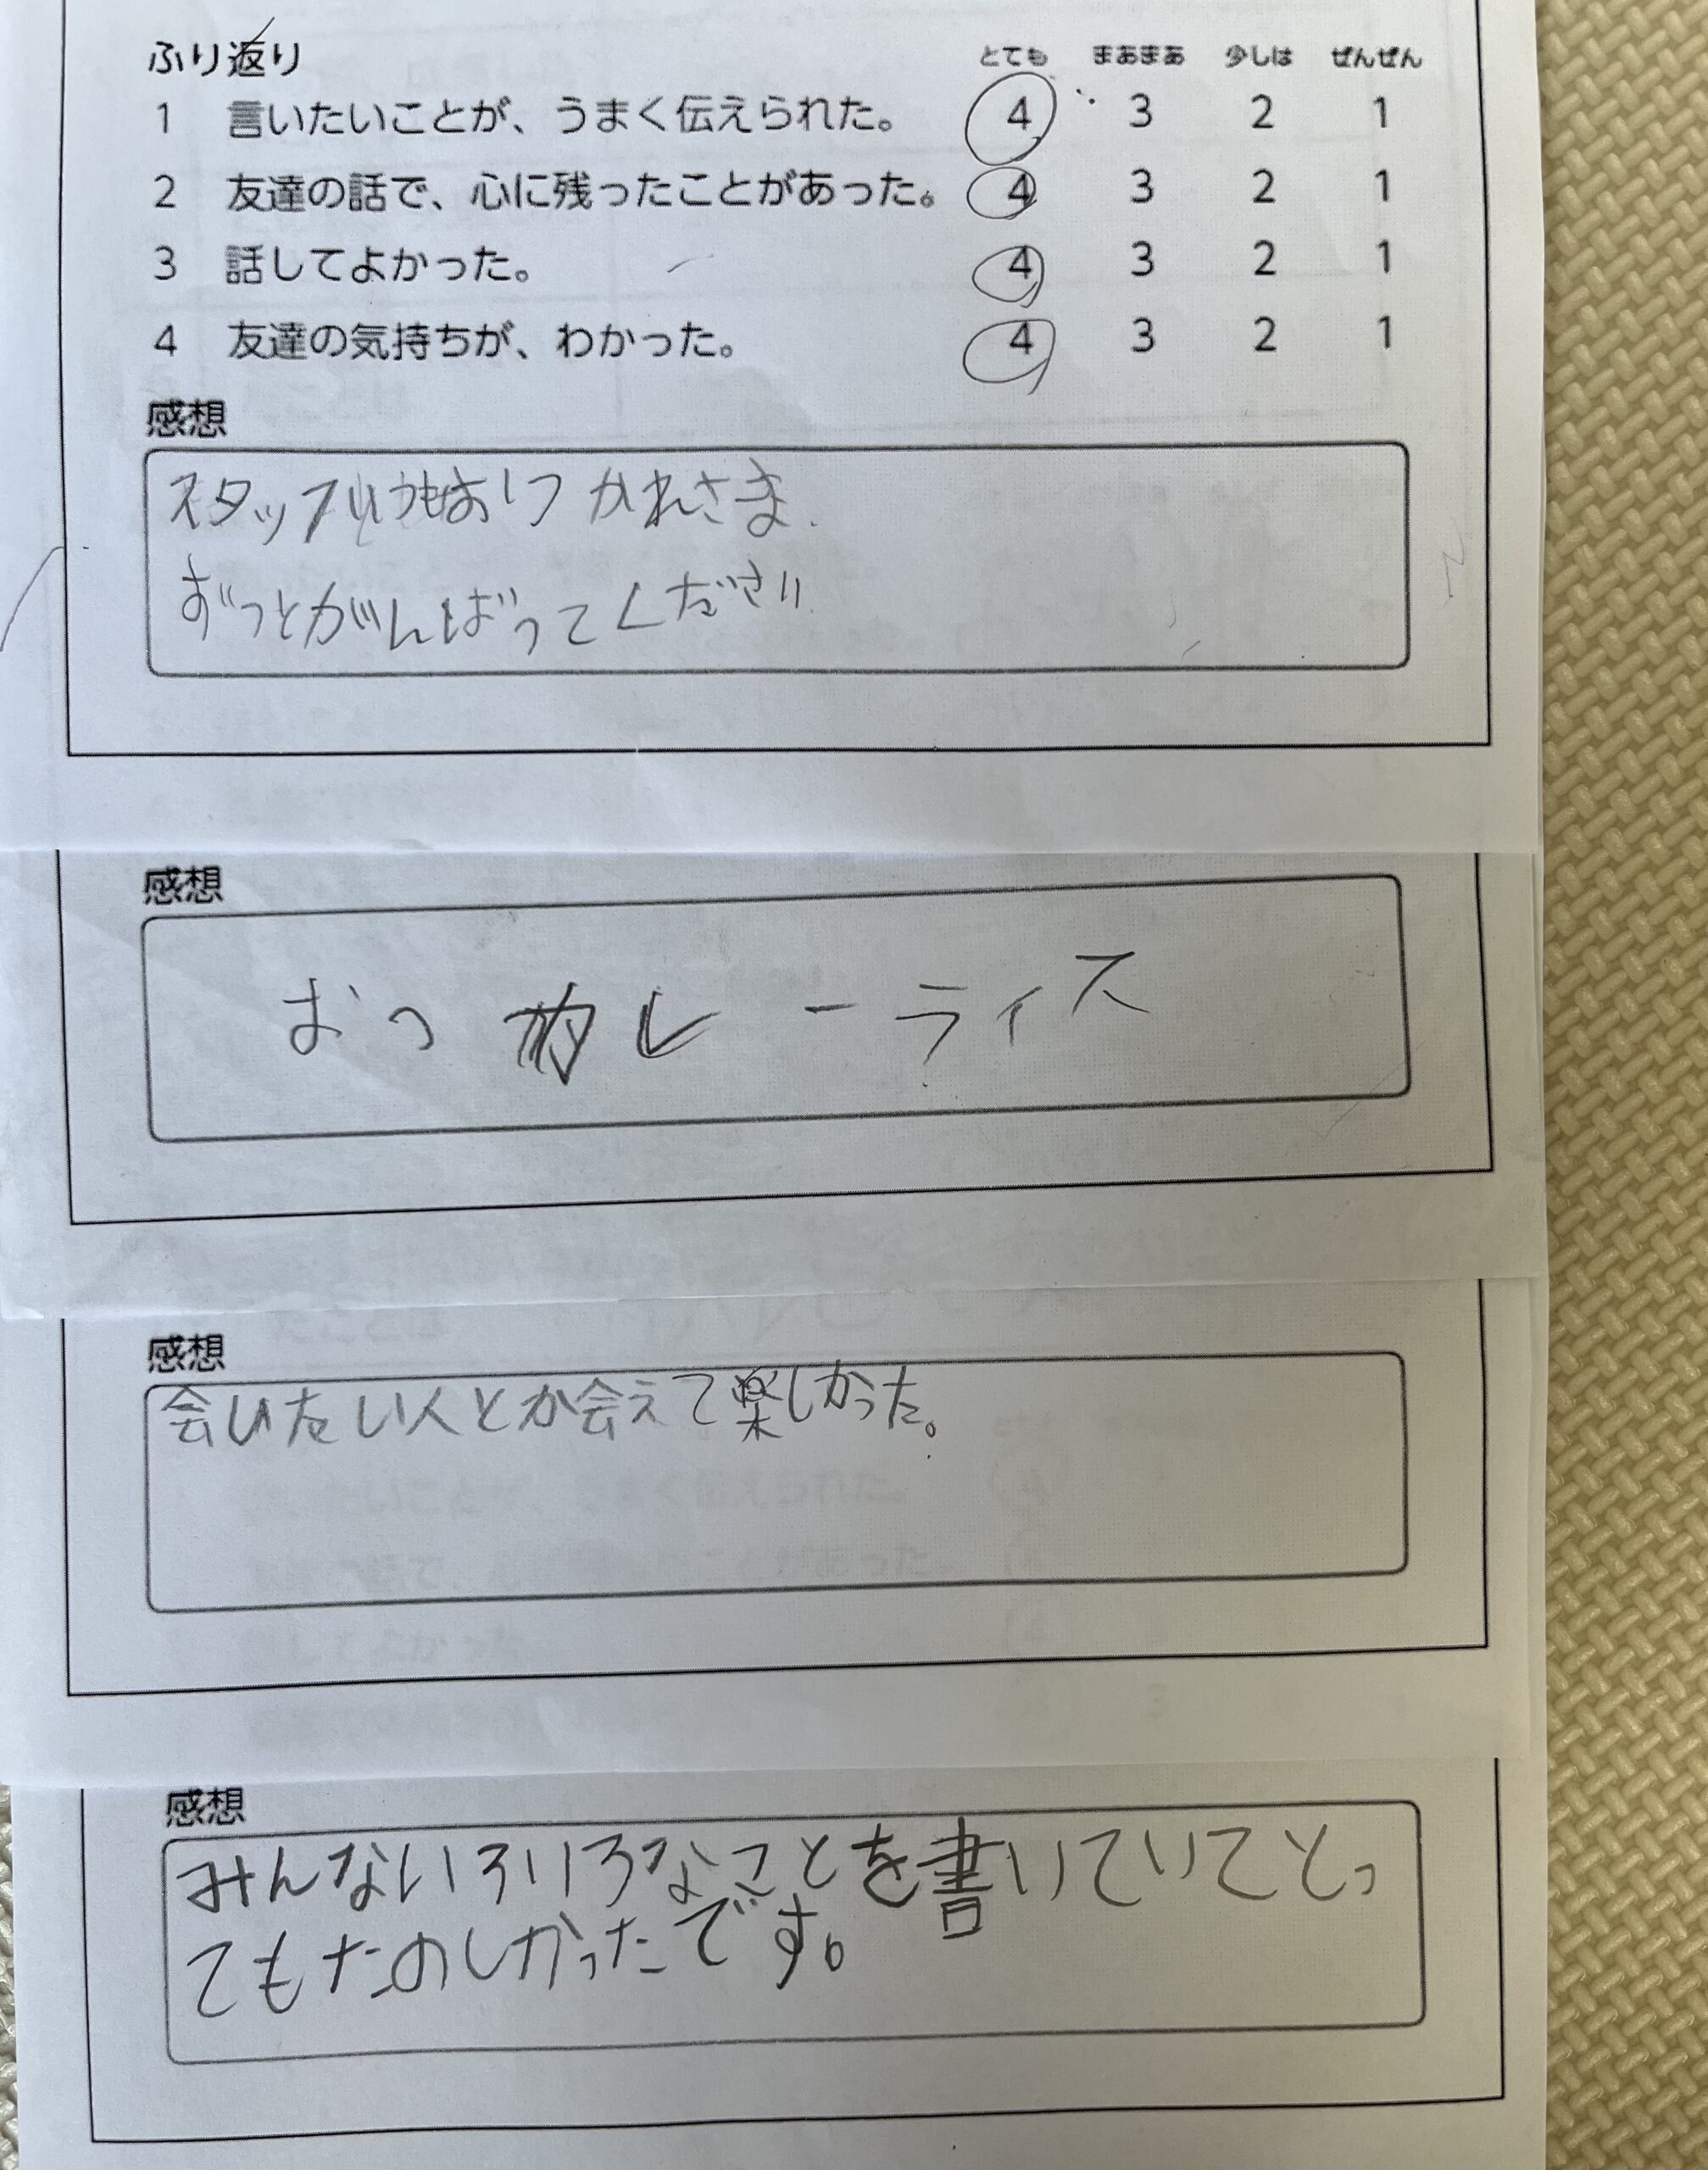 ふり返り とても まあまあ 少しは ぜんぜん
1 言いたいことが、うまく伝えられた。 4 3 2 1
2 友達の話で、心に残ったことがあった。 4 3 2 1
3 話してよかった。 4 3 2 1
4 友達の気持ちが、わかった。 4 3 2 1
感想
スタッフ おつかれさま.
ずっとがんばってください
感想
おつカレーライス
感想
会いたい人とか会えて楽しかった。
感想
みんないろいろなことを書いていてとっ
てもたのしかったです。